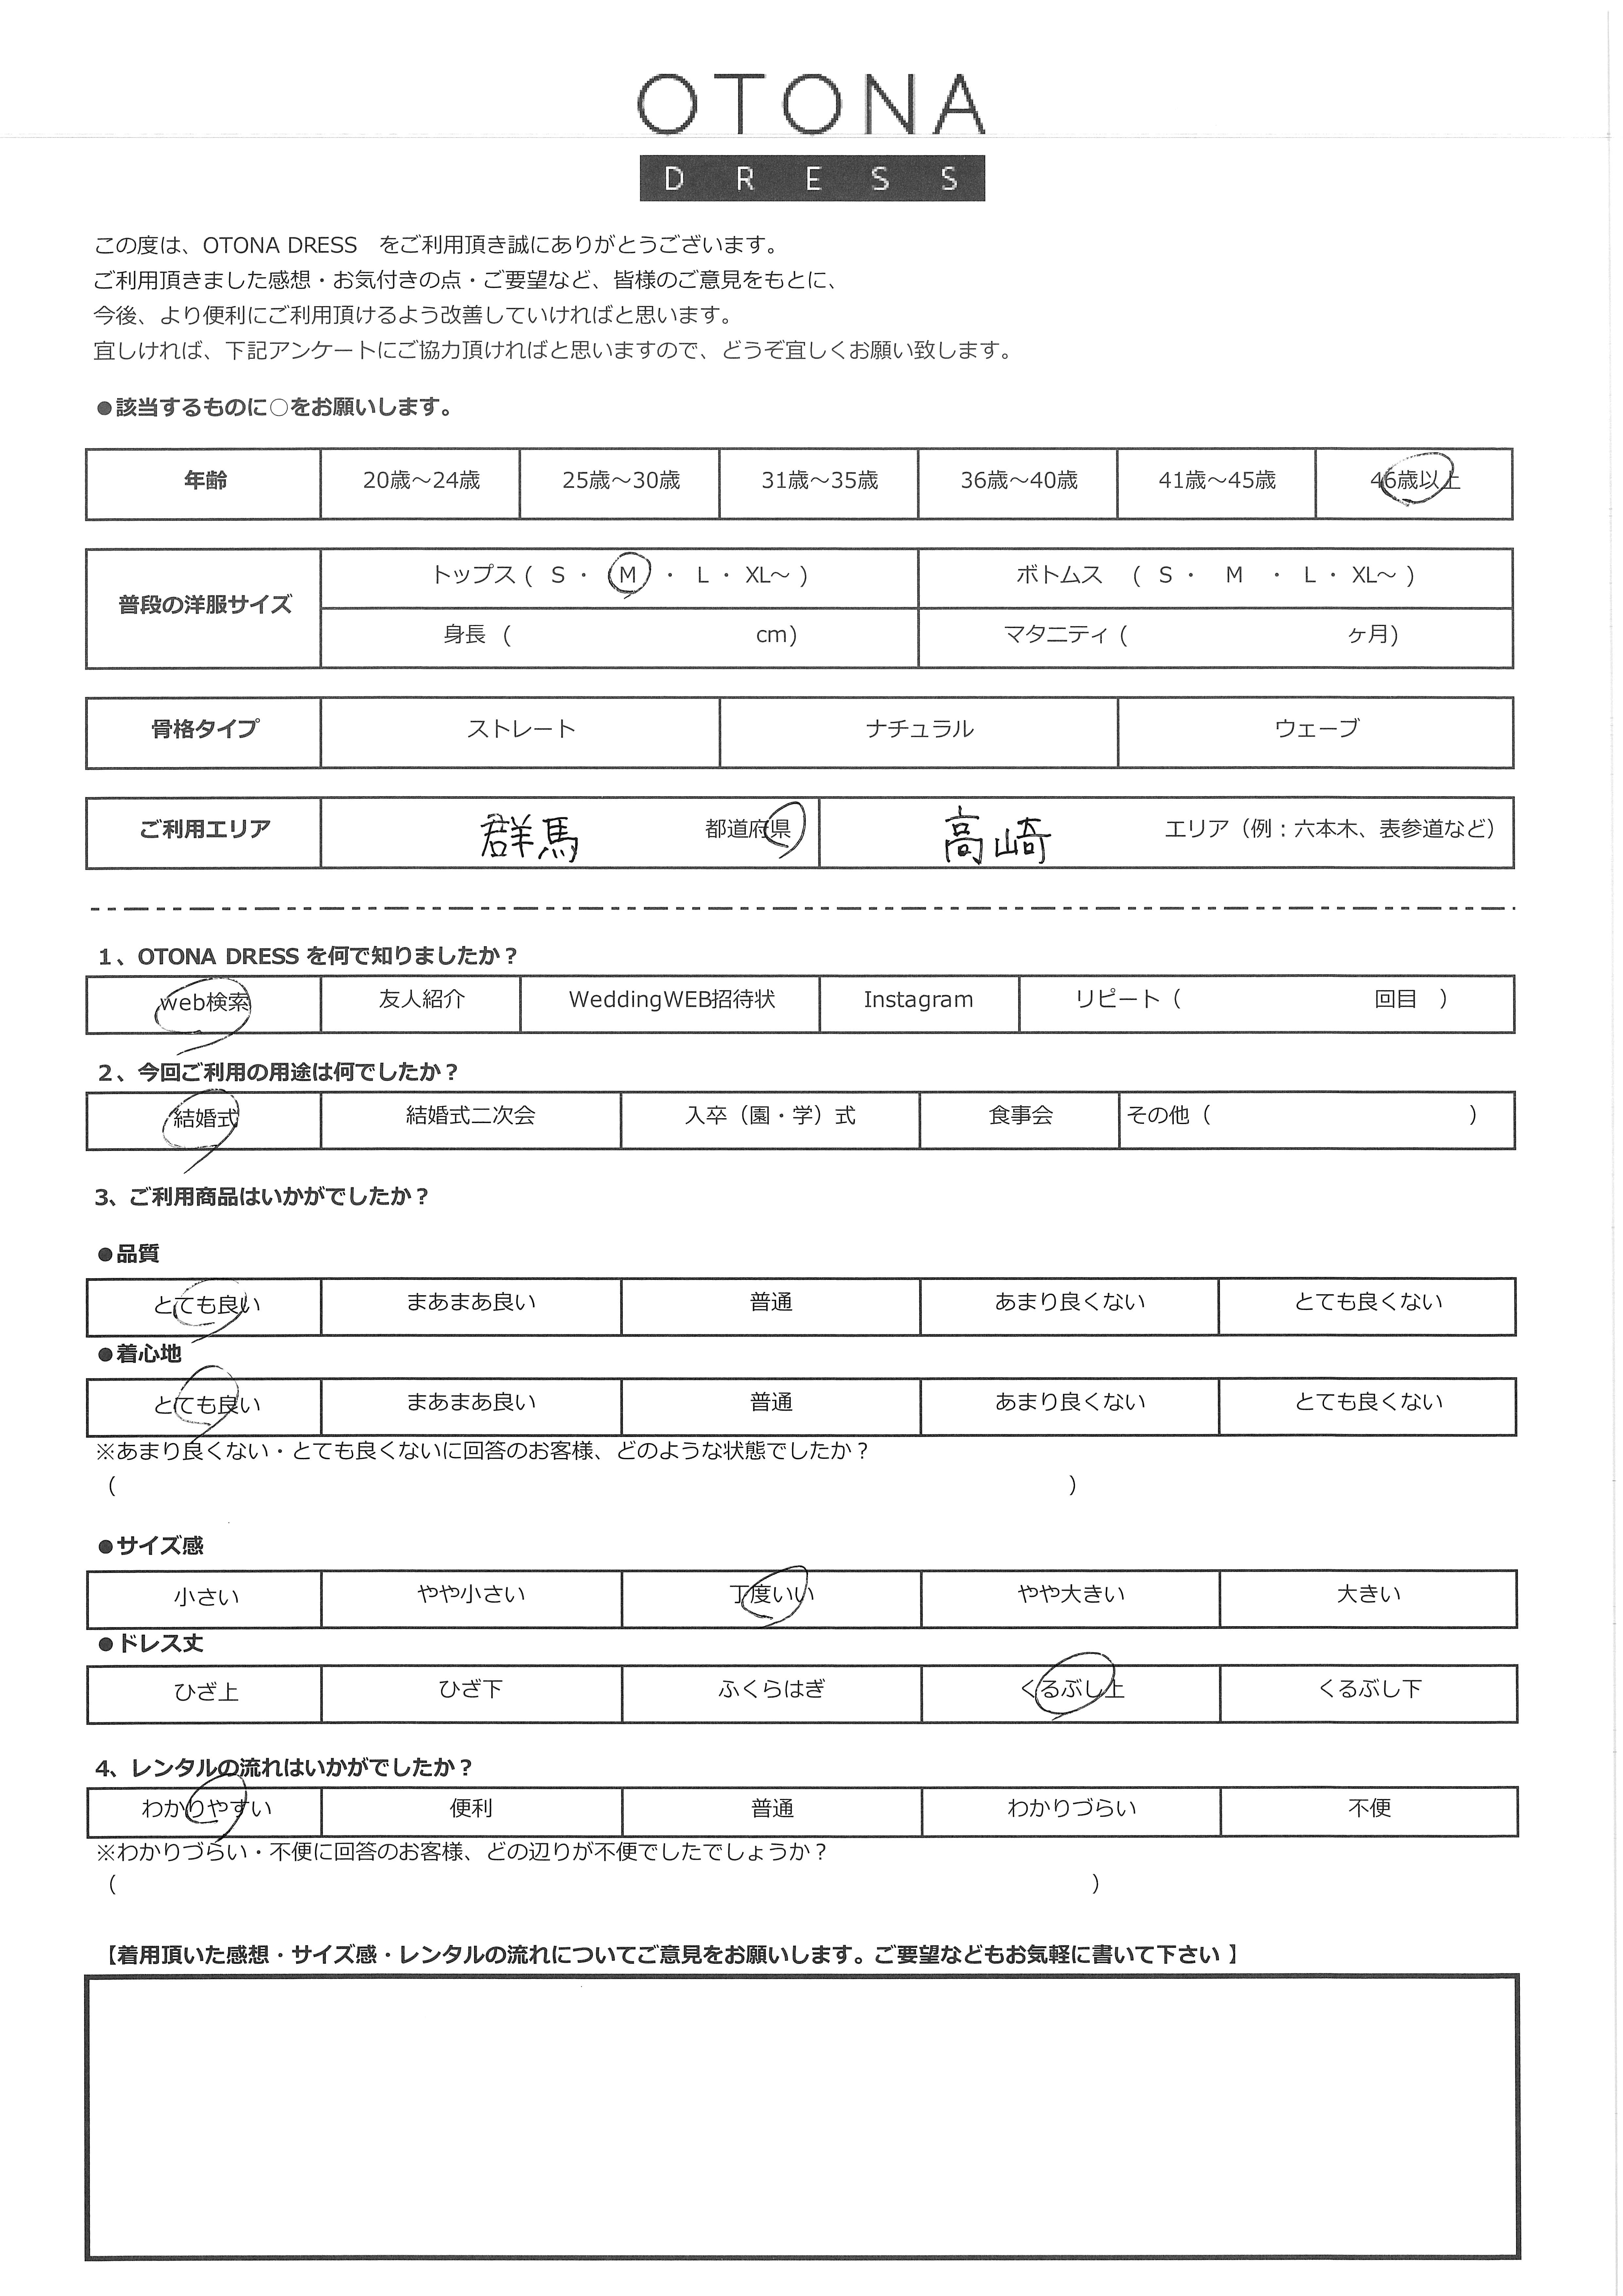 OTONA
DRESS
この度は、OTONA DRESS　をご利用頂き誠にありがとうございます。
ご利用頂きました感想・お気付きの点・ご要望など、皆様のご意見をもとに、
今後、より便利にご利用頂けるよう改善していければと思います。
宜しければ、下記アンケートにご協力頂ければと思いますので、どうぞ宜しくお願い致します。
●該当するものに○をお願いします。
年齢 20歳～24歳 25歳～30歳 31歳～35歳 36歳～40歳 41歳～45歳 46歳以上
普段の洋服サイズ
トップス ( S ・ M ・ L ・ XL～ ) ボトムス ( S ・ M ・ L ・ XL～ )
身長 ( cm) マタニティ ( ヶ月)
骨格タイプ ストレート ナチュラル ウェーブ
ご利用エリア 群馬 都道府県 高崎 エリア（例：六本木、表参道など）
1、OTONA DRESS を何で知りましたか？
web検索 友人紹介 WeddingWEB招待状 Instagram リピート（ 回目 ）
2、今回ご利用の用途は何でしたか？
結婚式 結婚式二次会 入卒（園・学）式 食事会 その他（ ）
3、ご利用商品はいかがでしたか？
●品質
とても良い まあまあ良い 普通 あまり良くない とても良くない
●着心地
とても良い まあまあ良い 普通 あまり良くない とても良くない
※あまり良くない・とても良くないに回答のお客様、どのような状態でしたか？
（ ）
●サイズ感
小さい やや小さい 丁度いい やや大きい 大きい
●ドレス丈
ひざ上 ひざ下 ふくらはぎ くるぶし上 くるぶし下
4、レンタルの流れはいかがでしたか？
わかりやすい 便利 普通 わかりづらい 不便
※わかりづらい・不便に回答のお客様、どの辺りが不便でしたでしょうか？
（ ）
【着用頂いた感想・サイズ感・レンタルの流れについてご意見をお願いします。ご要望などもお気軽に書いて下さい 】